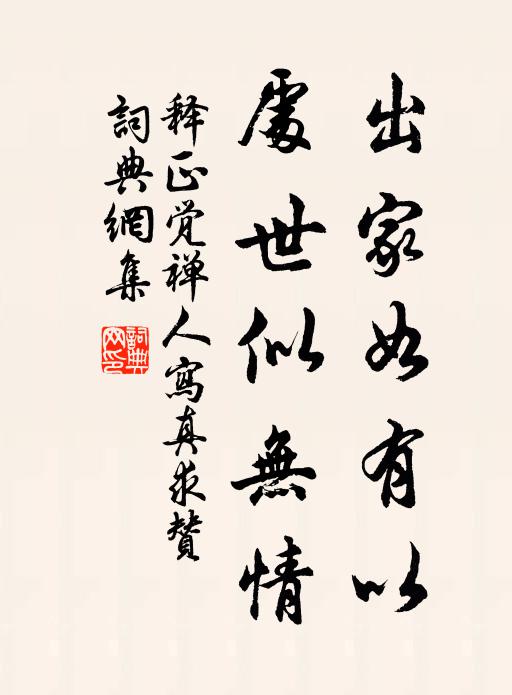 出家如有以
處世似無情
释正觉禅人寫真求贊
詞典網集
詞典網印